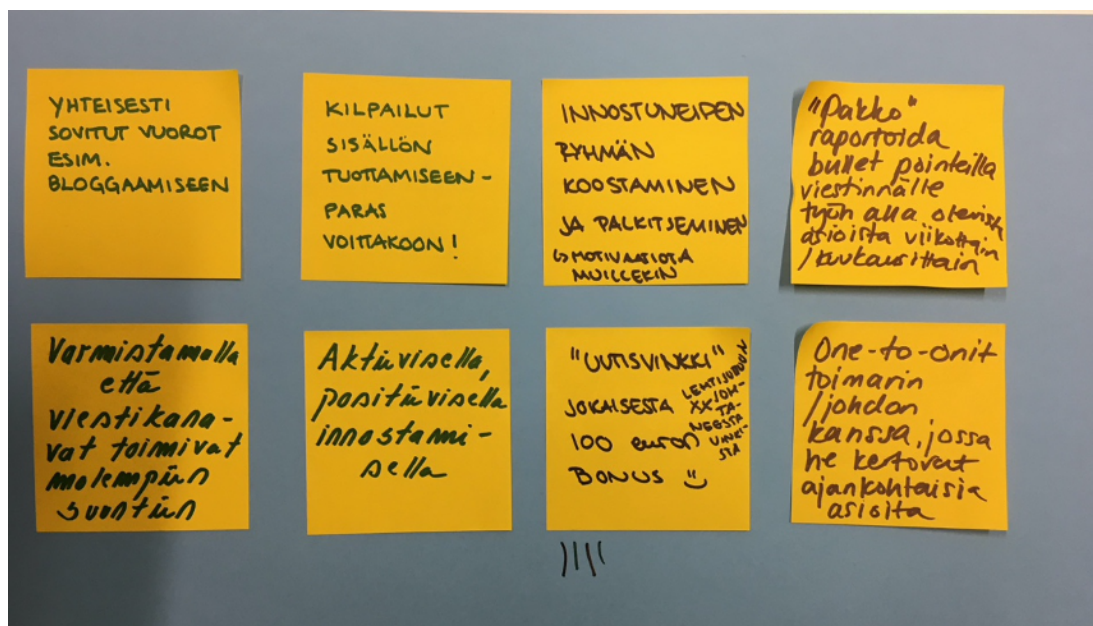 YHTEISESTI
SOVITUT VUOROT
ESIM.
BLOGGAAMISEEN
KILPAILUT
SISÄLLÖN
TUOTTAMISEEN -
PARAS
VOITTAKOON!
INNOSTUNEIDEN
RYHMÄN
KOOSTAMINEN
JA PALKITSEMINEN
↳ MOTIVAATIOTA
MUILLEKIN
"Pakko"
raportoida
bullet pointeilla
viestinnälle
työn alla olevista
asioista viikottain
/kuukausittain
Varmistamalla
että
viestikana-
vat toimivat
molempiin
suuntiin
Aktiivisella,
positiivisella
innostami-
sella
"UUTISVINKKI"
JOKAISESTA
100 euron
BONUS
LEHTIJUTTUUN
XX JOH-
TA-
NEESTA
VINKI-
STÄ
One-to-onit
toimarin
/johdon
kanssa, jossa
he kertovat
ajankohtaisia
asioita